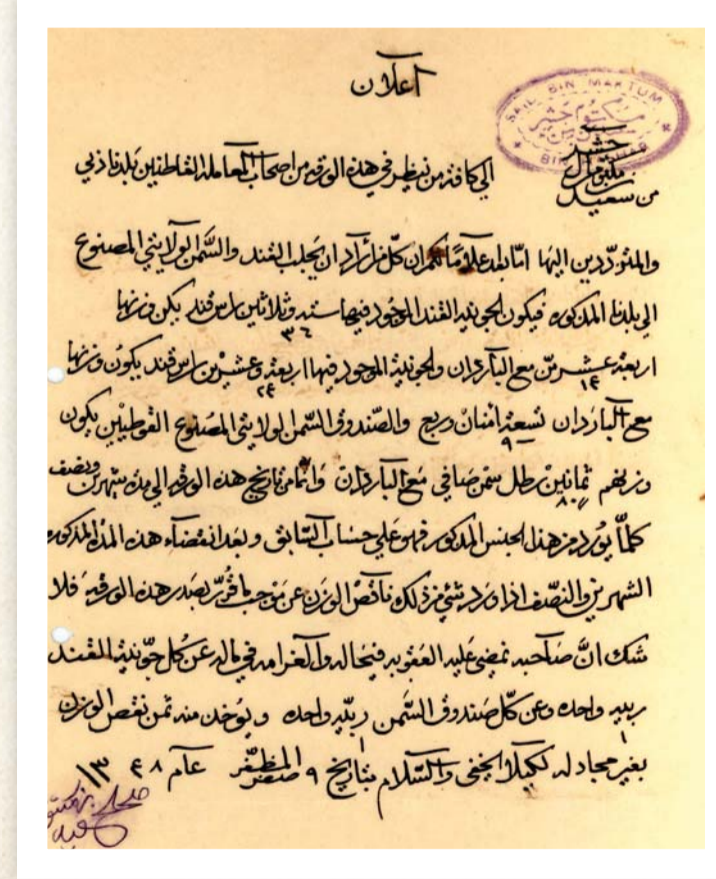 اعلان
SAIL BIN MAKTUM
من سعيد بن مكتوم ال حشر
الى كافة من ينظر في هذه الورقه من اصحاب المعامله القاطنين بلدنا دبي
والمتوددين اليها اما بعد علاوما لكم ان كل من اراد ان يجلب القند والسمن الولايتي المصنوع
الى بلدنا المذكوره فيكون الجونيه القند الموجود فيها سته وثلاثين راس قند يكن وزنها
٣٦
اربعة عشر من مع الباردان والجونية الموجود فيها اربعة وعشرين راس قند يكون وزنها
١٤ ٢٤
مع الباردان تسعة امنان وربع والصندوق السمن الولايتي المصنوع القوطيين يكون
٩
وزنهم ثمانين رطل سمن صافي مع الباردان واما من تاريخ هذه الورقه الى مدة شهرين ونصف
٨٠
كلما يورد من هذا الجنس المذكور فهو على حساب السابق وبعد انقضآء هذه المده المذكوره
الشهرين والنصف اذا ورد شئ من ذلك ناقص الوزن عن موجب ما قرر بصدر هذه الورقه فلا
شك ان صاحبه تمضي عليه العقوبه في حاله والغرامه في ماله عن كل جونية القند
ربيه واحده وعن كل صندوق السمن ربيه واحده ويوخذ منه ثمن نقص الوزن
١ ١
بغير مجادله لكيلا يخفى والسلام بتاريخ ٩ صفر المظفر عام ١٣٤٨